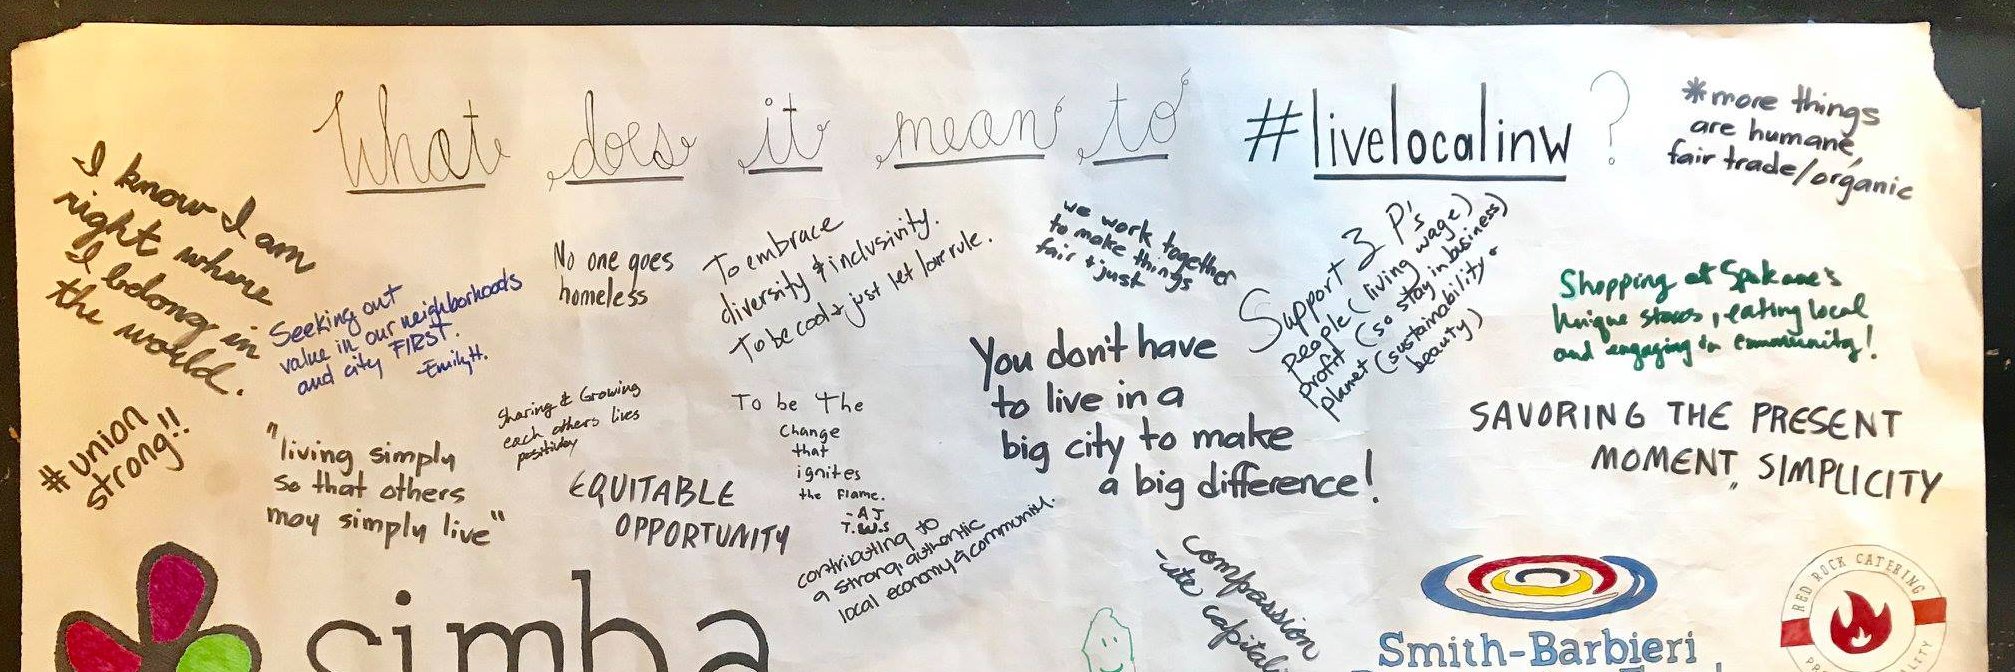 What does it mean to #livelocalinw ?
*more things
are humane,
fair trade/organic
I know I am
right where
I belong in
the world.
Seeking out
value in our neighborhoods
and city FIRST.
Emily H.
No one goes
homeless
To embrace
diversity & inclusivity.
To be cool & just let love rule.
we work together
to make things
fair + just
Support 3 P's
people (living wage)
profit (so stay in business)
planet (sustainability,
beauty)
Shopping at Spokane's
Unique stores, eating local
and engaging in community!
#union
strong!!
"living simply
so that others
may simply live"
Sharing & Growing
each others lives
positivley
EQUITABLE
OPPORTUNITY
To be the
Change
that
ignites
the Flame.
-AJ
T.W.S
You don't have
to live in a
big city to make
a big difference!
SAVORING THE PRESENT
MOMENT, SIMPLICITY
contributing to
a strong, authentic
local economy & community.
compassion
-ate
simba
Smith-Barbieri
RED ROCK CATERING